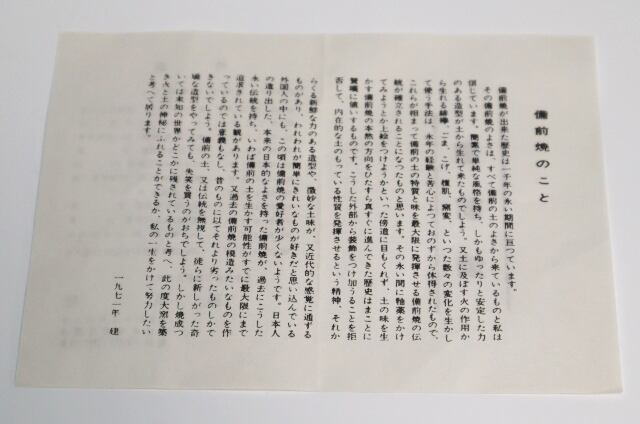 備前焼のこと
備前焼が出来た歴史は一千年の永い期間に亘っています。
その備前焼のよさは、すべて備前の土のよさから来ているものと私は
信じています。簡素で単純な風格を持ち、しかもゆったりと安定した力
のある造型が土から生れて来たものでしよう。又土に及ぼす火の作用か
ら生れる緋襷、ごま、こげ、榎肌、窯変、といつた数々の変化を生かし
て使う手法は、永年の経験と苦心によつておのずから体得されたもので、
これらが相まつて備前の土の特質と味を最大限に発揮させる備前焼の伝
統が確立されることになつたものと思います。その永い間に釉薬をかけ
てみようとか上絵をつけようかといった傍道に目もくれず、土の味を生
かす備前焼の本然の方向をひたすら真すぐに進んできた歴史はまことに
賞嘆に値いするものです。こうした外部から装飾をつけ加うることを拒
否して、内在的な土のもっている性質を発揮させるという精神、それか
らくる新鮮な力のある造型や、微妙な土味が、又近代的な感覚に通ずる
ものがあり、われわれが簡単にきれいなものが好きだと思い込んでいる
外国人の中にも、この頃は備前焼の愛好者が少くないようです。日本人
の造り出した、本来の日本的なよさを持った備前焼が、過去にこうした
永い伝統を持ち、いわば備前の土を生かす可能性がすでに最大限にまで
追求されている観があります。又過去の備前焼の模造みたいなものを作
っているのでは意義もなし、昔のものに以てそれより劣ったものしかで
きないでしよう。備前の土、又は伝統を無視して、徒らに新しがった奇
頃な造型をやってみても、失笑を買うのがおちでしよう。しかし焼成つ
いては未知の世界がどこかに残されているものと考へ、此の度大窯を築
き火と土の神秘にふれることができるか、私の一生をかけて努力したい
と考へて居ります。
一九七一年